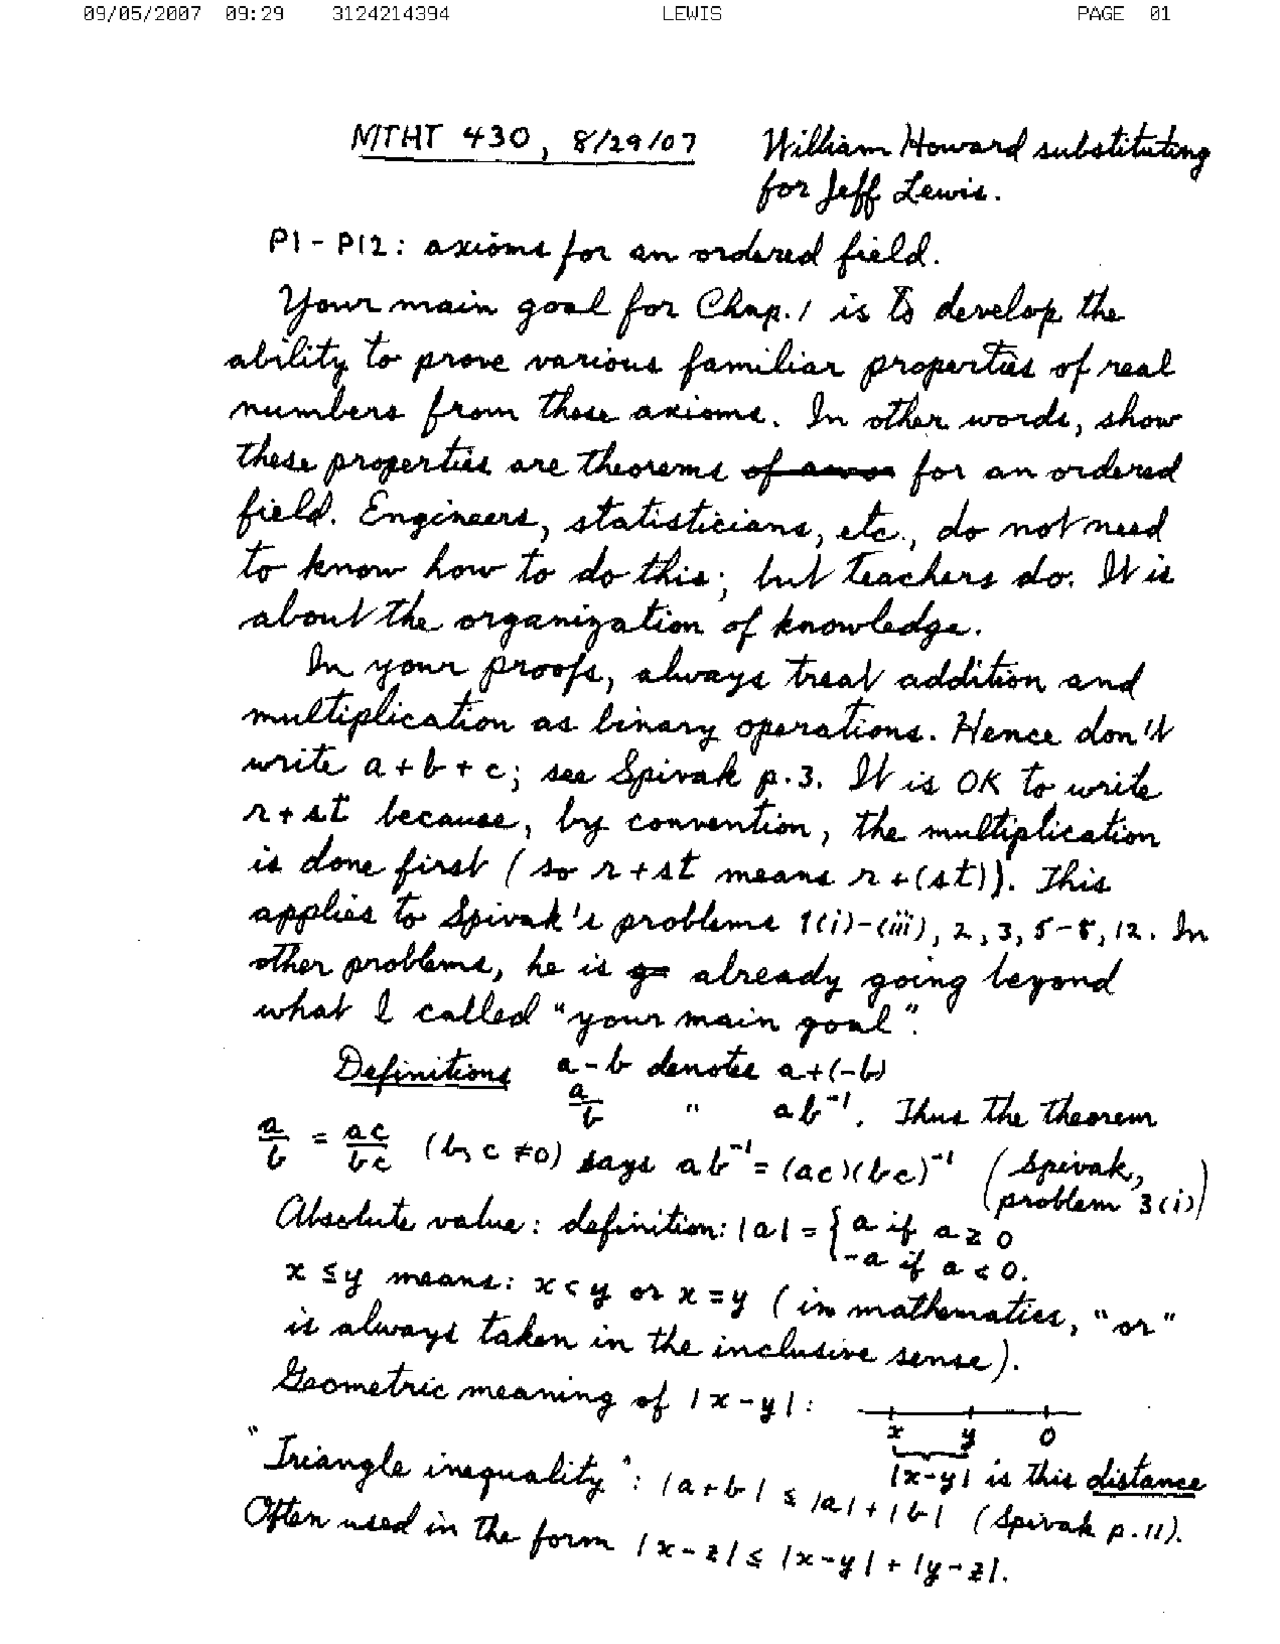 09/05/2007 09:29 3124214394 LEWIS PAGE 01
MTHT 430, 8/29/07 William Howard substituting
for Jeff Lewis.
P1-P12: axioms for an ordered field.
Your main goal for Chap. 1 is to develop the
ability to prove various familiar properties of real
numbers from these axioms. In other words, show
these properties are theorems for an ordered
field. Engineers, statisticians, etc., do not need
to know how to do this; but teachers do. It is
about the organization of knowledge.
In your proofs, always treat addition and
multiplication as binary operations. Hence don't
write a+b+c; see Spivak p.3. It is OK to write
r+st because, by convention, the multiplication
is done first (so r+st means r+(st)). This
applies to Spivak's problems 1(i)-(iii), 2, 3, 5-8, 12. In
other problems, he is already going beyond
what I called "your main goal".
Definitions a-b denotes a+(-b)
a/b " ab⁻¹. Thus the theorem
a/b = ac/bc (b, c ≠ 0) says ab⁻¹ = (ac)(bc)⁻¹ (Spivak,
problem 3(i))
Absolute value: definition: |a| = { a if a ≥ 0
-a if a < 0.
x ≤ y means: x < y or x = y (in mathematics, "or"
is always taken in the inclusive sense).
Geometric meaning of |x-y|:
x y 0
|x-y| is this distance
"Triangle inequality": |a+b| ≤ |a|+|b| (Spivak p.11).
Often used in the form |x-z| ≤ |x-y| + |y-z|.